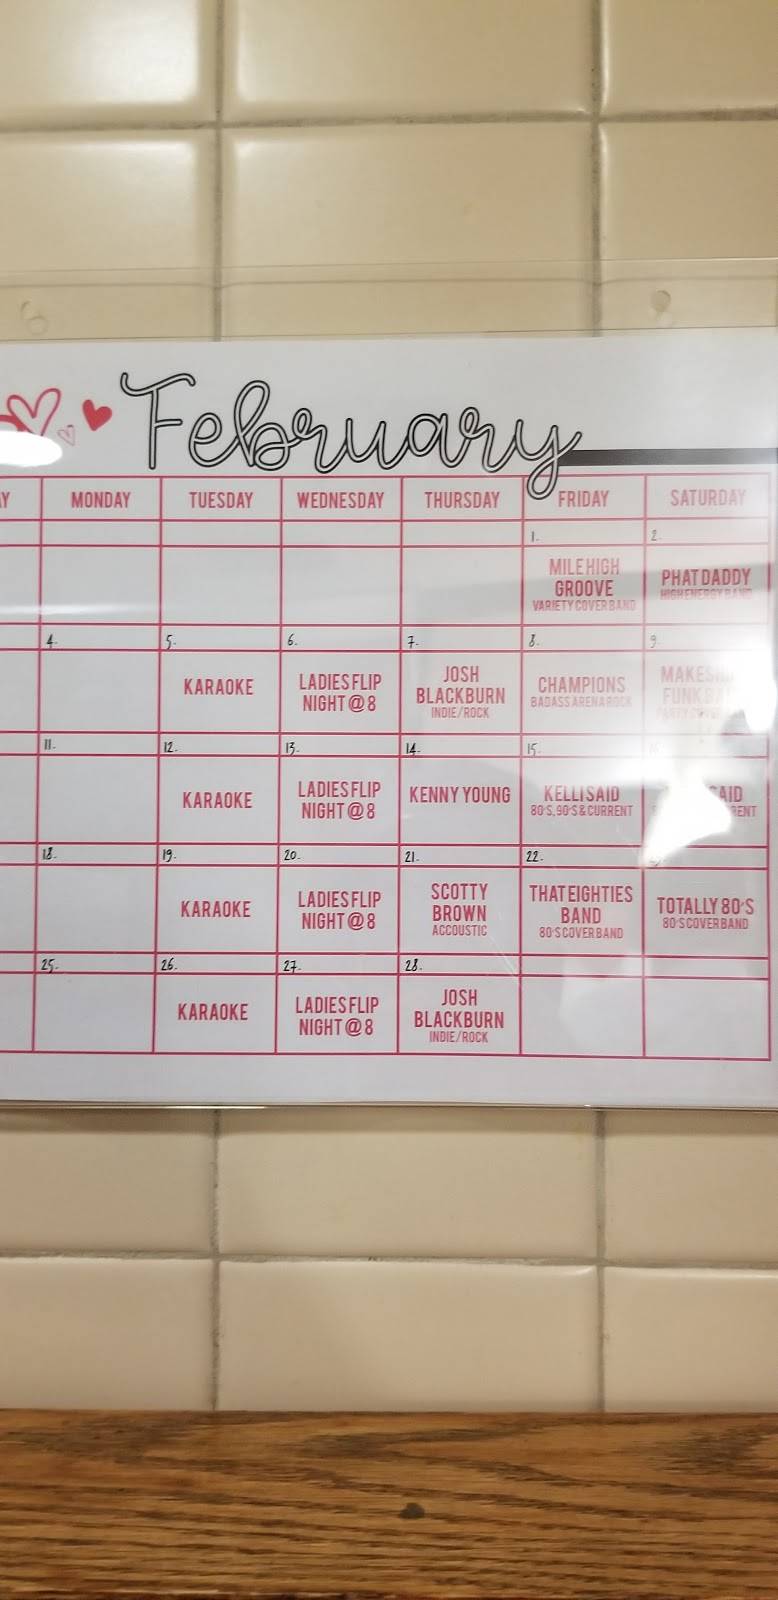 February
MONDAY TUESDAY WEDNESDAY THURSDAY FRIDAY SATURDAY
1. 2.
MILE HIGH
GROOVE
VARIETY COVER BAND
PHAT DADDY
HIGH ENERGY BAND
4. 5. 6. 7. 8. 9.
KARAOKE
LADIES FLIP
NIGHT @ 8
JOSH
BLACKBURN
INDIE/ROCK
CHAMPIONS
BADASS ARENA ROCK
FUNK
11. 12. 13. 14. 15.
KARAOKE
LADIES FLIP
NIGHT @ 8
KENNY YOUNG
KELLI SAID
80'S, 90'S & CURRENT
SAID
18. 19. 20. 21. 22.
KARAOKE
LADIES FLIP
NIGHT @ 8
SCOTTY
BROWN
ACCOUSTIC
THAT EIGHTIES
BAND
80'S COVER BAND
TOTALLY 80'S
80'S COVER BAND
25. 26. 27. 28.
KARAOKE
LADIES FLIP
NIGHT @ 8
JOSH
BLACKBURN
INDIE/ROCK